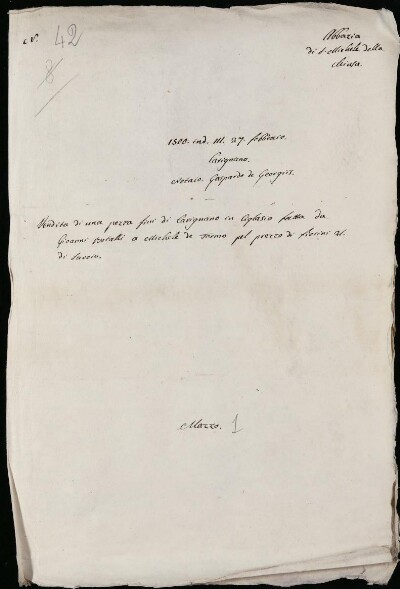 N. 42
8
Abbazia
di S. Michele della
Chiusa
1500. ind. III. 27. febbraio.
Carignano.
Notaro. Gaspardo de Georgiis.
Vendita di una pezza fini di Carignano in fatta da
Gioanni a Michele de pel prezzo di fiorini
di Savoia.
Mazzo. 1